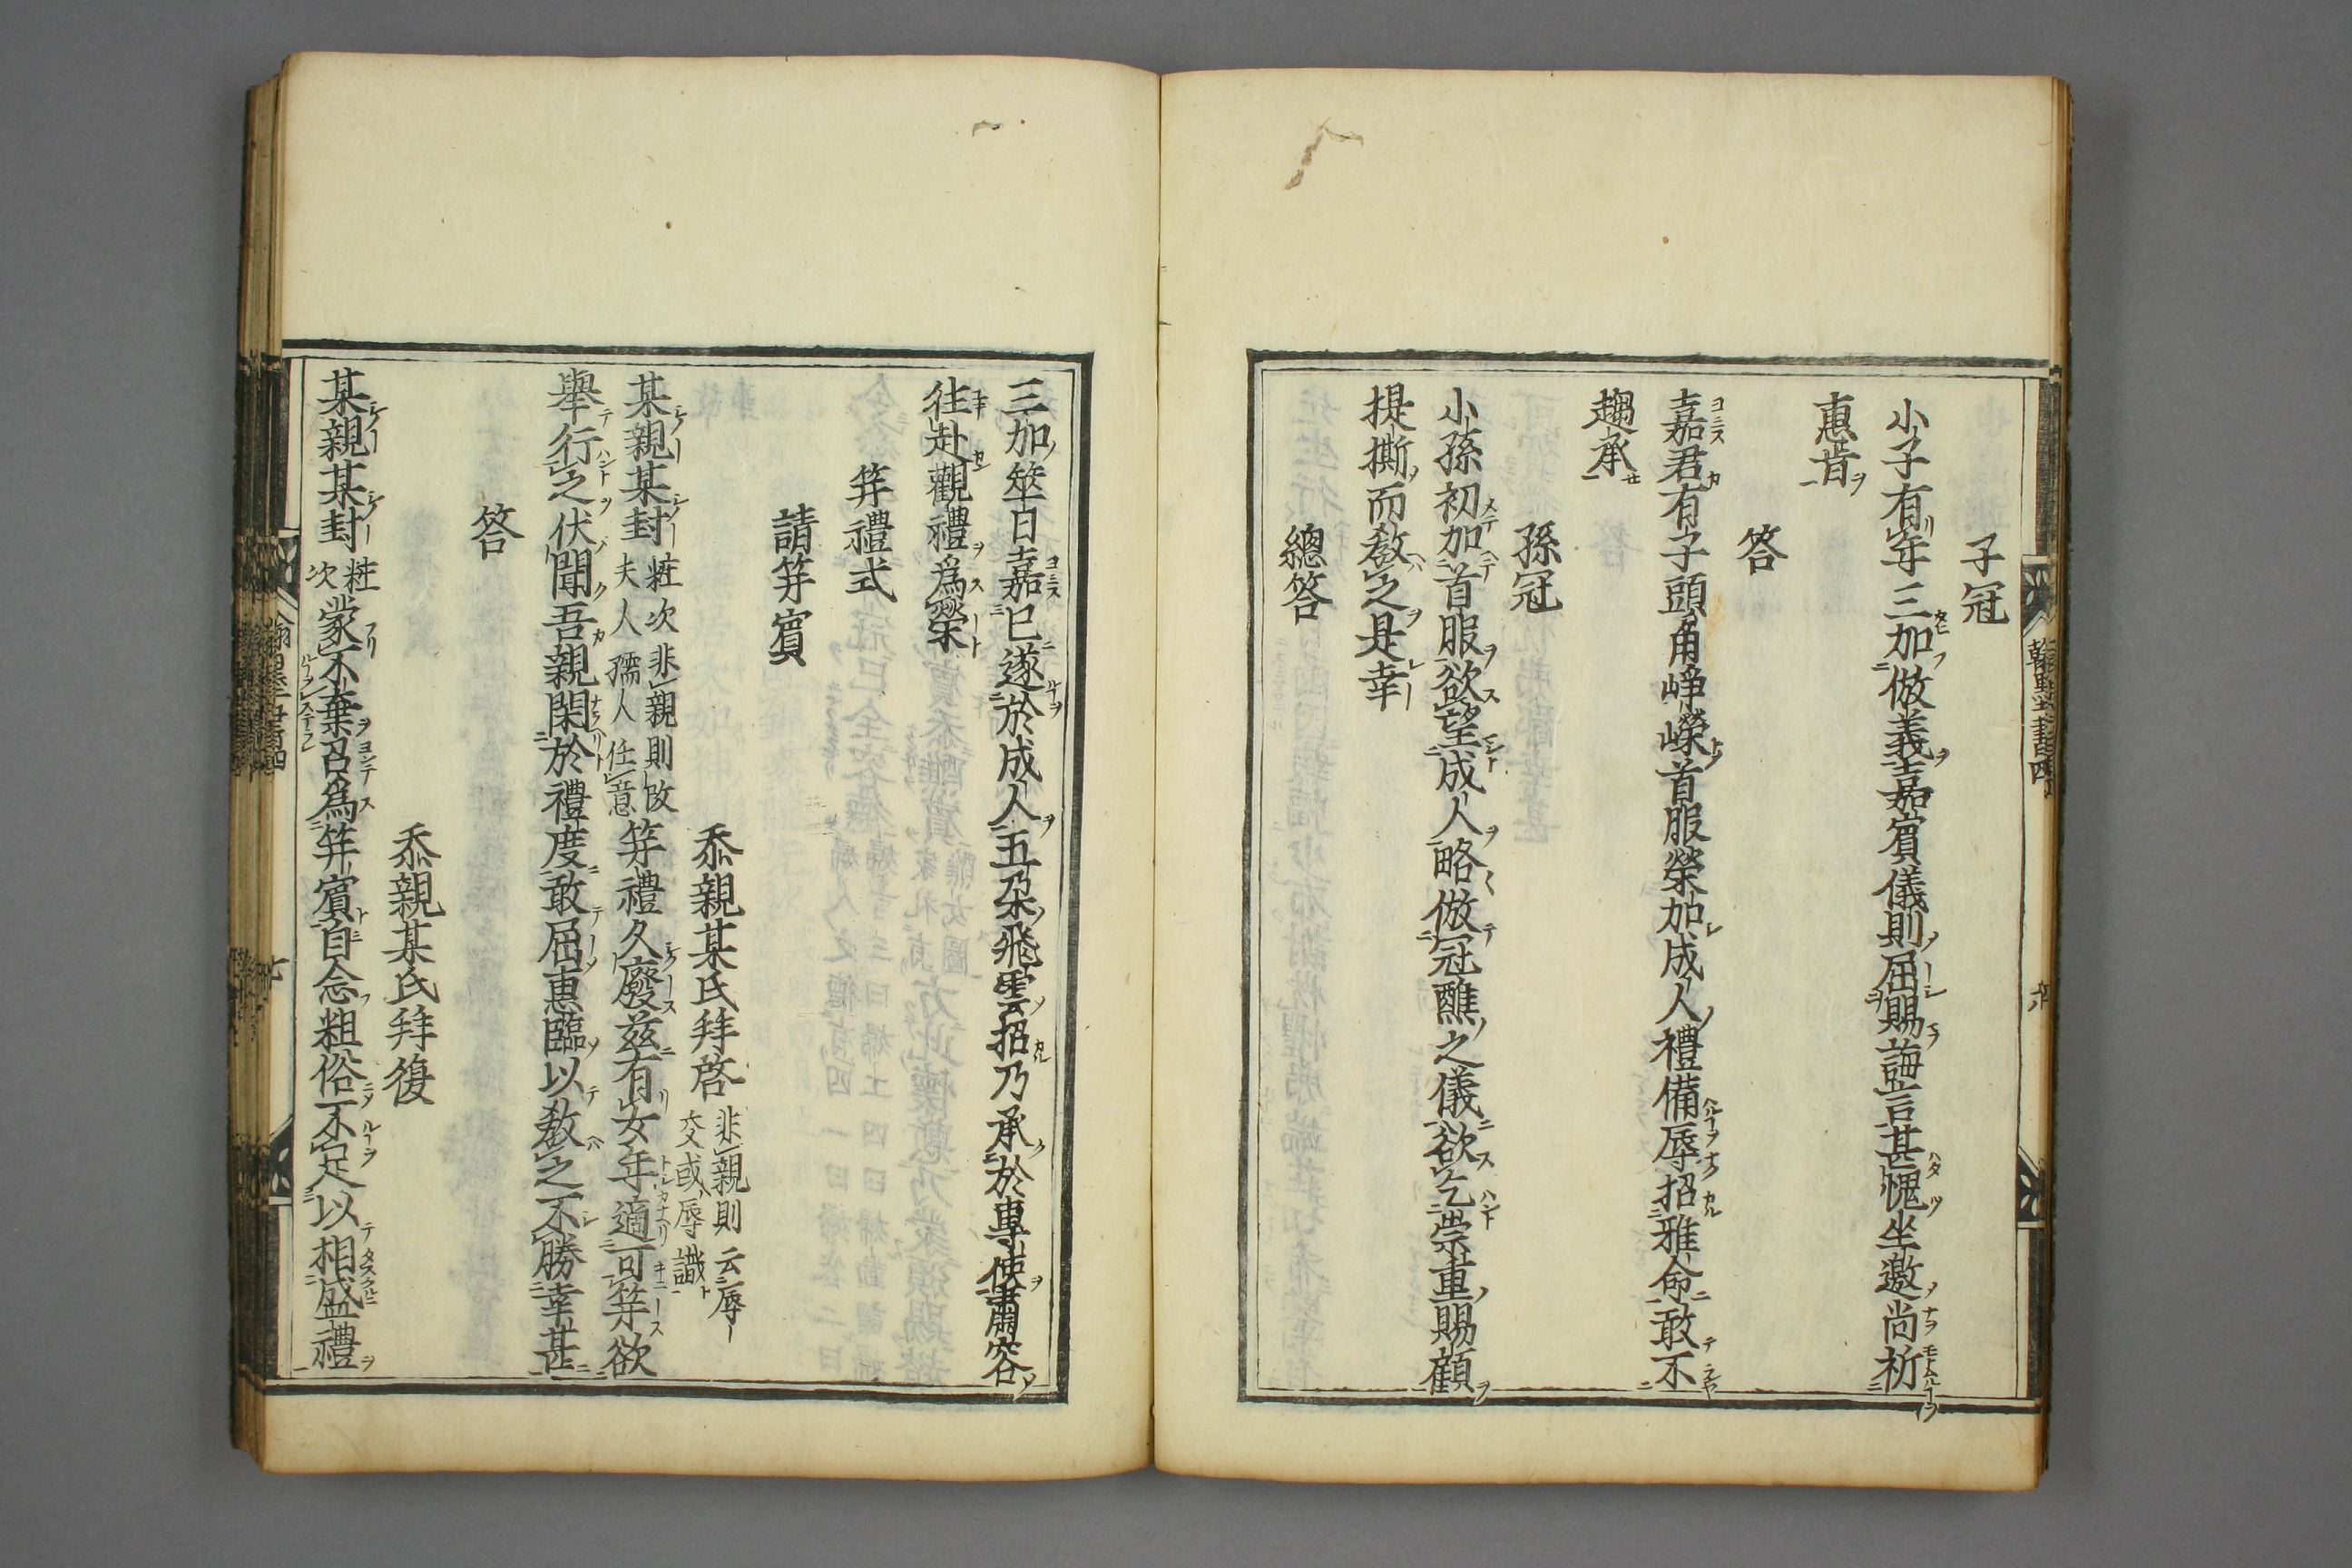 子冠
小子有年三加倣義嘉賓儀則屈賜誨言甚愧坐邀尚祈
惠肯
答
嘉君有子頭角崢嶸首服榮加成人禮備辱招雅命敢不
趨承
孫冠
小孫初加首服欲望成人略倣冠醮之儀欲乞崇重賜顧
提撕而教之是幸
總答
三加筮日嘉已遂於成人五朶飛雲招乃承於專使肅容
往赴觀禮爲榮
笄禮式
請笄賓
忝親某氏拜啓非親則云辱
交或辱識
某親某封粧次非親則改
夫人孺人任意笄禮久廢茲有女年適可笄欲
舉行之伏聞吾親閑於禮度敢屈惠臨以教之不勝幸甚
答
忝親某氏拜復
某親某封粧
次蒙不棄召爲笄賓自念粗俗不足以相盛禮